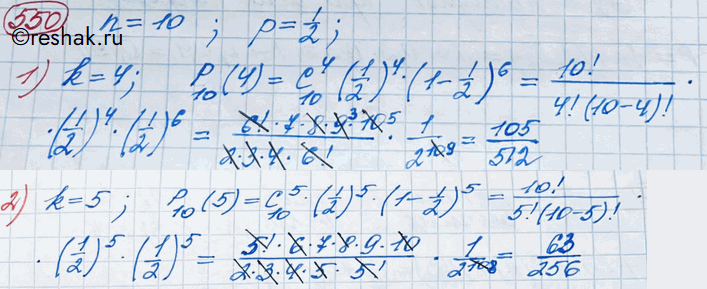 550 n = 10 ; p = 1/2 ;
©reshak.ru
1) k = 4; P₁₀(4) = C₁₀⁴ (1/2)⁴ · (1 - 1/2)⁶ = 10! / 4!(10-4)! ·
· (1/2)⁴ · (1/2)⁶ = 6! · 7 · 8 · 9³ · 10⁵ / 2 · 3 · 4 · 6! · 1/2¹⁰⁹ = 105/512
2) k = 5 ; P₁₀(5) = C₁₀⁵ · (1/2)⁵ · (1 - 1/2)⁵ = 10! / 5!(10-5)! ·
· (1/2)⁵ · (1/2)⁵ = 5! · 6 · 7 · 8 · 9 · 10 / 2 · 3 · 4 · 5 · 5! · 1/2¹⁰⁸ = 63/256